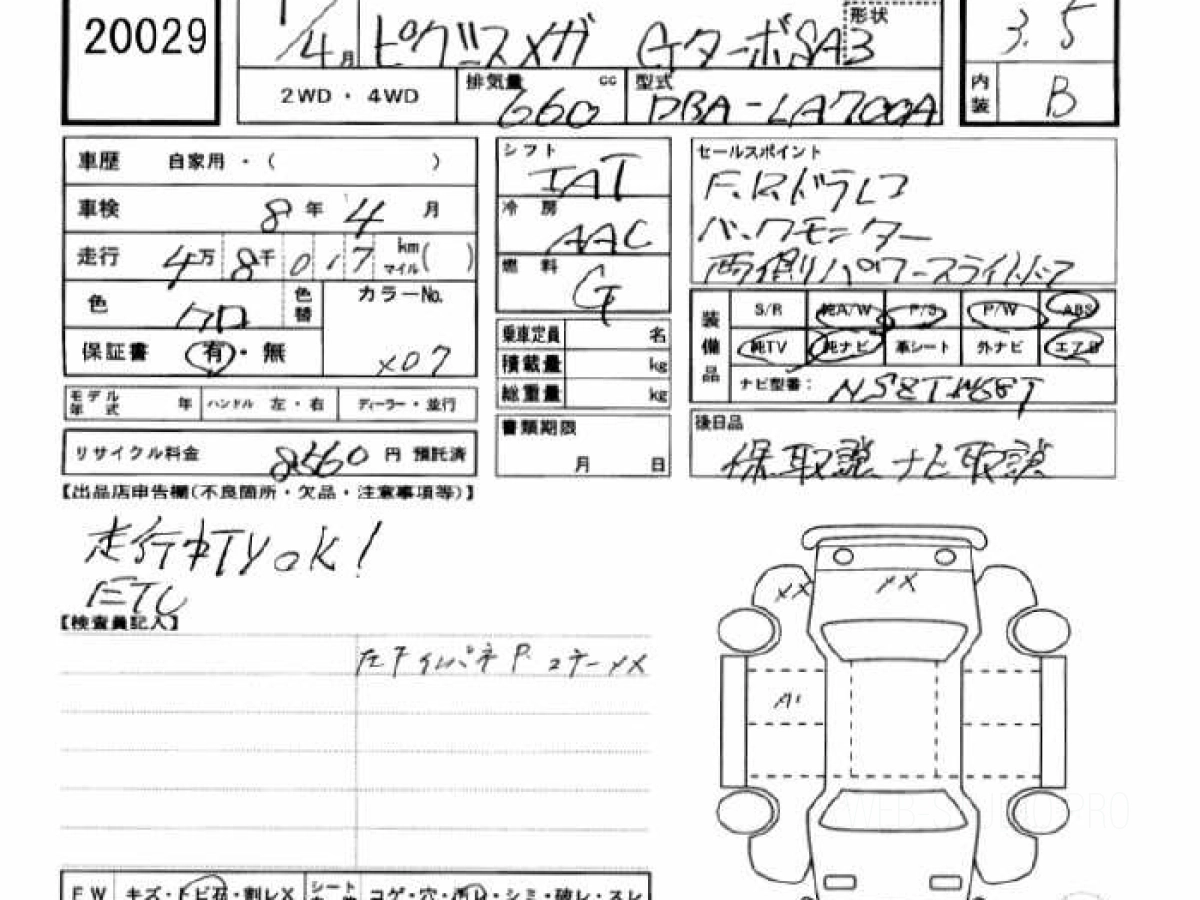 20029
4月
ピクシスメガ GターボSA3
形状
3.5
2WD・4WD
排気量 cc
660
型式
DBA-LA700A
内装 B
車歴 自家用・( )
車検 8年 4月
走行 4万 8千 017 km マイル( )
色 クロ 色替
カラーNo.
X07
保証書 有・無
シフト
IAT
冷房
AAC
燃料
G
セールスポイント
F.R.ドラレコ
バックモニター
両側パワースライド
乗車定員 名
積載量 kg
総重量 kg
装備品
S/R 純A/W P/S P/W ABS
純TV 純ナビ 革シート 外ナビ エアB
ナビ型番:
モデル年式 年 ハンドル 左・右 ディーラー・並行
リサイクル料金 8560 円 預託済
書類期限
月 日
後日品
保 取説 ナビ取説
【出品店申告欄(不良箇所・欠品・注意事項等)】
走行中TV OK!
ETC
【検査員記入】
XX
XX
A1
FW キズ・トビ石・割レX シート コゲ・穴・汚レ・シミ・破レ・スレ
WEB-STUDIO PRO